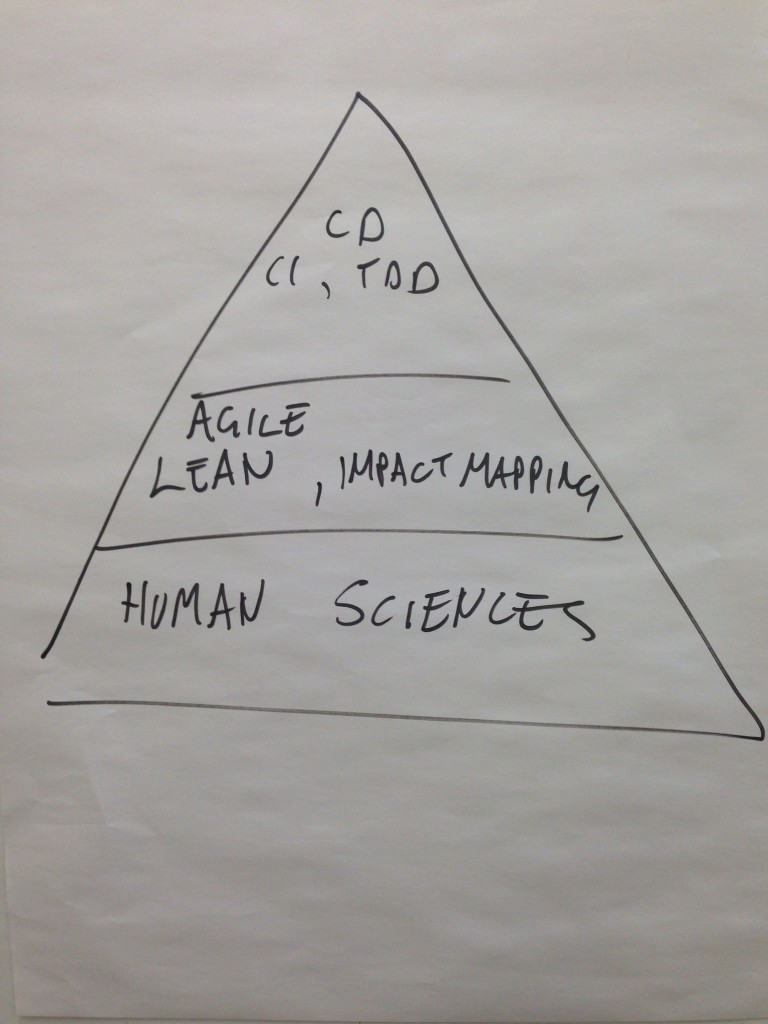 CD
CI, TDD
AGILE
LEAN, IMPACT MAPPING
HUMAN SCIENCES